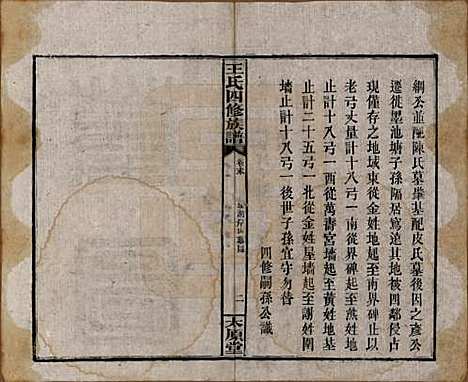 綱公並配陳氏墓肇基配皮氏墓後因之彥公
遷徙墨池塘子孫隔居寫遠其地被四鄰侵占
現僅存之地域東從金姓地起至南界碑止計
老弓丈量計十八弓一南從界碑起至熊姓地
止計十八弓一西從萬壽宮墻起至黃姓地基
止計二十五弓一北從金姓屋墻起至謝姓圍
墻止計十八弓一後世子孫宜守勿替
四修嗣孫公識
王氏四修族譜
卷末
二
太原堂